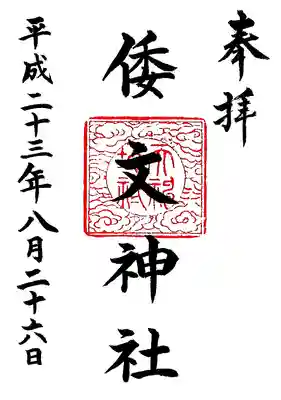 奉拝
倭文神社
平成二十三年八月二十六日